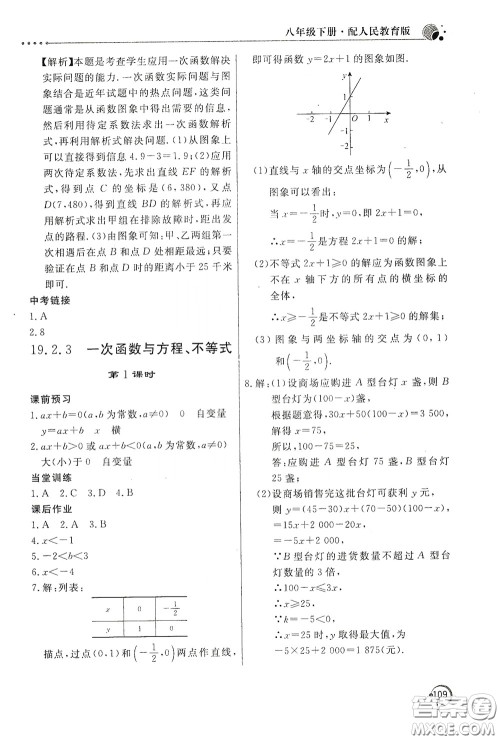 八年级下册·配人民教育版
【解析】本题是考查学生应用一次函数解决
实际问题的能力.一次函数实际问题与图
象结合是近年试题中的热点问题,这类问
题通常是从函数图象中得出需要的信息,
然后利用待定系数法求出一次函数解析
式,再利用解析式解决问题.(1)从图象上
可以直接得到 4.9-3=1.9;(2)应用两
次待定系数法,先求出直线 EF 的解析
式,得到点 C 的坐标是(6,380),又点
D(7,480),得到直线 BD 的解析式,再
应用解析式求出甲组在排除故障时,距出
发点的路程.(3)由图象可知:甲、乙两组
第一次相遇后在 B 和 D 处相距最远.只要
验证在点 B 和点 D 处距离小于 25 千米
即可.
中考链接
1.A
2.8
19.2.3 一次函数与方程、不等式
第1课时
课前预习
1.ax+b=0(a,b 为常数,a≠0) 自变量
y=ax+b x
2.ax+b>0 或 ax+b<0(a,b 为常数,a≠0)
大(小)于 0 自变量
当堂训练
1.A 2.C 3.D
课后作业
1.A 2.D 3.A
4.x<-1
5.-2<x<3
6.x<4
7.解:列表:
x 0 -1/2
y 1 0
描点,过点(0,1)和(-1/2,0)两点作直线,
即可得函数 y=2x+1 的图象.
y
2
1
-2 -1 O 1 2 x
-1
-2
(1)直线与 x 轴的交点坐标为(-1/2,0),从
图象可以看出:
当 x=-1/2 时,即 2x+1=0,
∴x=-1/2 是方程 2x+1=0 的解.
(2)不等式 2x+1≥0 的解应为函数图象上
不在 x 轴下方的所有点的横坐标的
全体,
∴x≥-1/2 是不等式 2x+1≥0 的解集;
(3)图象与两坐标轴的交点为(0,1)
和(-1/2,0).
8.解:(1)设商场应购进 A 型台灯 x 盏,则
B 型台灯为(100-x)盏,
根据题意得,30x+50(100-x)=3 500,
解得 x=75,
所以,100-75=25,
答:应购进 A 型台灯 75 盏,B 型台灯
25 盏;
(2)设商场销售完这批台灯可获利 y 元,
则 y=(45-30)x+(70-50)(100-x)
=15x+2 000-20x
=-5x+2 000,
∵B 型台灯的进货数量不超过 A 型台
灯数量的 3 倍,
∴100-x≤3x,
∴x≥25,
∵k=-5<0,
∴x=25 时,y 取得最大值,为
-5×25+2 000=1 875(元).
109